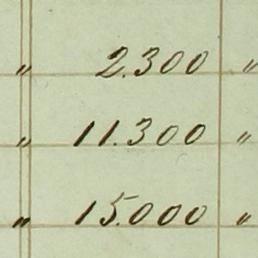 " 2.300 "
" 11.300 "
" 15.000 "